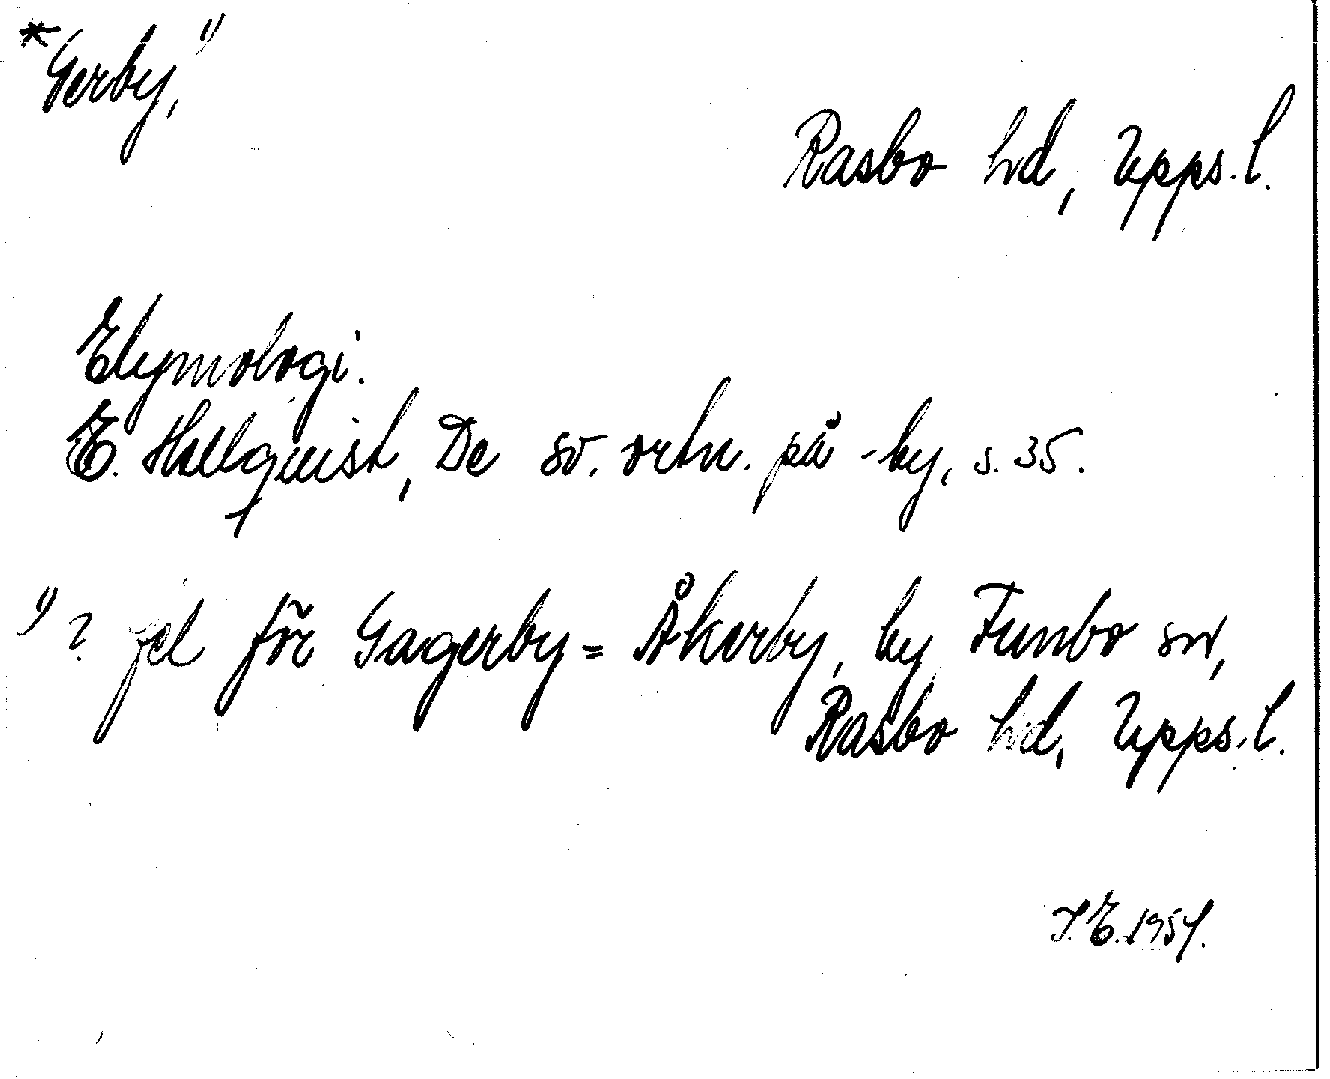 *Gerby, 1)
Rasbo hd, Upps. l.
Etymologi.
E. Hellquist, De sv. ortn. på -by, s. 35.
1) ? fel för Gagerby = Åkerby, by Funbo sn,
Rasbo hd, Upps. l.